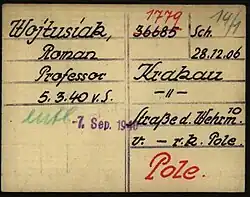 1779
14/1
Wojtusiak, 36685 Sch.
Roman 28.12.06
Professor Krakau
5.3.40 v.S. -"-
entl. -7. Sep. 1940 Straße d. Wehrm. 10
v. - r.k. Pole.
Pole.